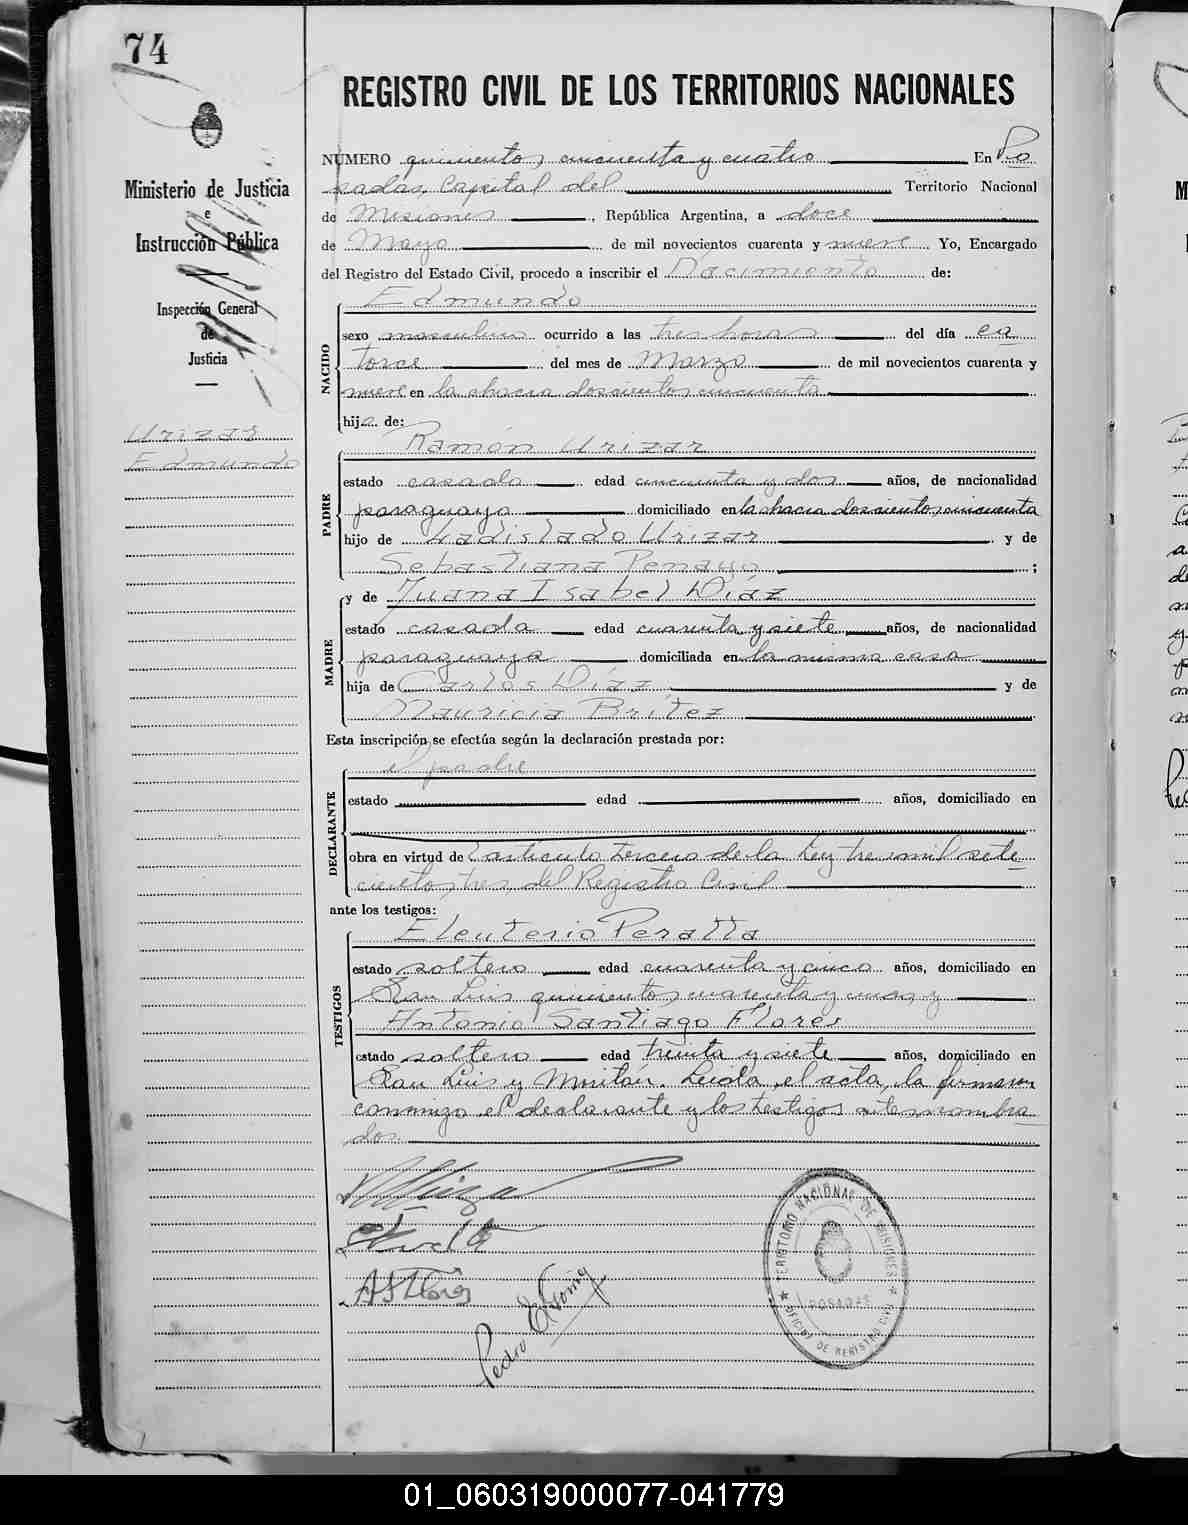 74
REGISTRO CIVIL DE LOS TERRITORIOS NACIONALES
Ministerio de Justicia
e
Instrucción Pública
Inspección General
de
Justicia
Urizar
Edmundo
NUMERO quinientos cincuenta y cuatro En Po
sadas, Capital del Territorio Nacional
de Misiones, República Argentina, a doce
de Mayo de mil novecientos cuarenta y nueve Yo, Encargado
del Registro del Estado Civil, procedo a inscribir el Nacimiento de:
NACIDO
Edmundo
sexo masculino ocurrido a las tres horas del día ca
torce del mes de Marzo de mil novecientos cuarenta y
nueve en la chacra doscientos cincuenta
hijo de:
PADRE
Ramón Urizar
estado casado edad cincuenta y dos años, de nacionalidad
paraguayo domiciliado en la chacra doscientos cincuenta
hijo de Ladislado Urizar y de
Sebastiana Penayo;
MADRE
y de Juana Isabel Díaz
estado casada edad cuarenta y siete años, de nacionalidad
paraguaya domiciliada en la misma casa
hija de Carlos Díaz y de
Mauricia Brítez
Esta inscripción se efectúa según la declaración prestada por:
DECLARANTE
el padre
estado edad años, domiciliado en
obra en virtud de artículo tercero de la Ley tres mil sete
cientos tres del Registro Civil
ante los testigos:
TESTIGOS
Eleuterio Peralta
estado soltero edad cuarenta y cinco años, domiciliado en
San Luis quinientos y
Antonio Santiago Flores
estado soltero edad treinta y siete años, domiciliado en
San Luis y Monitán. Leída el acta, la firmaron
conmigo el declarante y los testigos antes nombra
dos.
A S Flores
Pedro
TERRITORIO NACIONAL DE MISIONES
POSADAS
OFICINA DE REGISTRO CIVIL
01_060319000077-041779